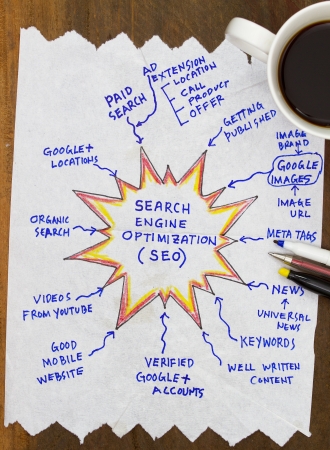 AD
EXTENSION
LOCATION
CALL
PRODUCT
OFFER
PAID
SEARCH
GETTING
PUBLISHED
IMAGE
BRAND
GOOGLE
IMAGES
IMAGE
URL
GOOGLE+
LOCATIONS
SEARCH
ENGINE
OPTIMIZATION
(SEO)
ORGANIC
SEARCH
META TAGS
VIDEOS
FROM YOUTUBE
NEWS
UNIVERSAL
NEWS
KEYWORDS
GOOD
MOBILE
WEBSITE
VERIFIED
GOOGLE+
ACCOUNTS
WELL WRITTEN
CONTENT